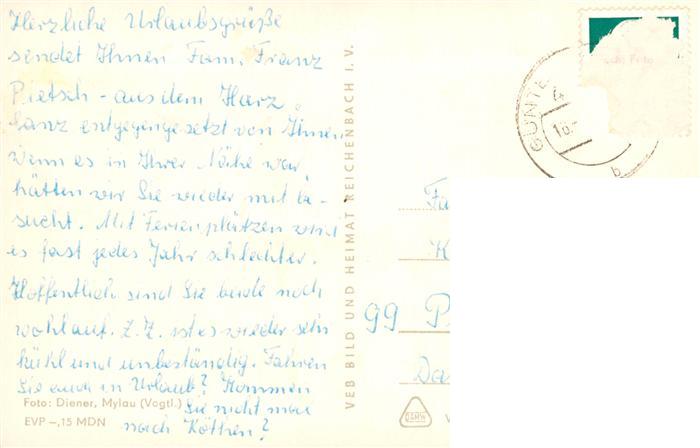 Herzliche Urlaubsgrüße
sendet Ihnen Fam. Franz
Pietsch - aus dem Harz.
Ganz entgegengesetzt von Ihnen
wenn es in Ihrer Nähe war
hätten wir Sie wieder mit be-
sucht. Mit Ferienplätzen wird
es fast jedes Jahr schlechter.
Hoffentlich sind Sie beide noch
wohlauf. Z. Z. ist es wieder sehr
kühl und unbeständig. Fahren
Sie auch in Urlaub? Kommen
Sie nicht mal
nach Köthen?
Foto: Diener, Mylau (Vogtl.)
EVP -,15 MDN
VEB BILD UND HEIMAT REICHENBACH I. V.
GÜNTE
4
18.
b
Fa
K
99 P
Da
DAMW
V